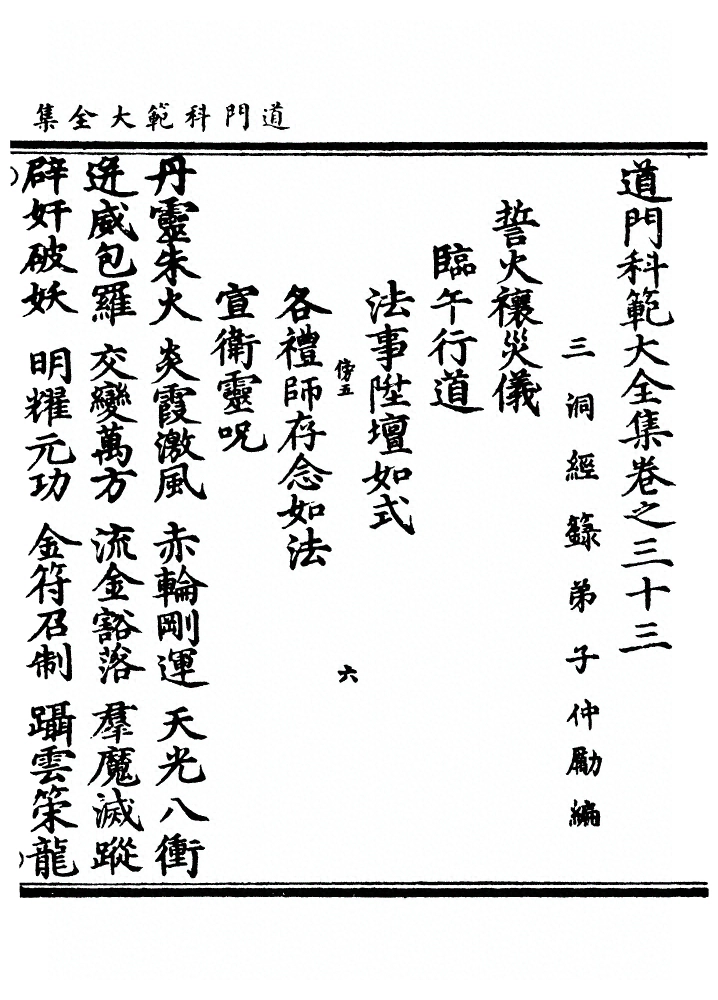 道門科範大全集
道門科範大全集卷之三十三
三洞經籙弟子仲勵編
誓火禳災儀
臨午行道
法事陞壇如式
傍五
六
各禮師存念如法
宣衛靈呪
丹靈朱火 炎霞激風 赤輪剛運 天光八衝
迸威包羅 交變萬方 流金豁落 羣魔滅蹤
辟奸破妖 明耀元功 金符召制 躡雲策龍